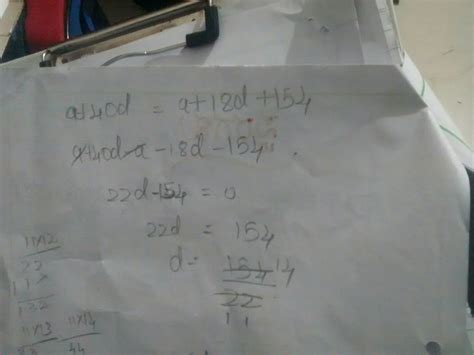 a+40d = a+18d+154
a+40d-a -18d-154
22d-154 = 0
22d = 154
d = 154 14
22
11x12
22
11x13 11x14
44